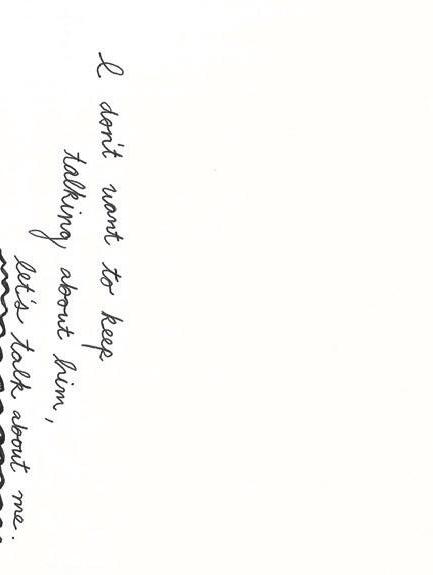 I don't want to keep
talking about him,
let's talk about me.